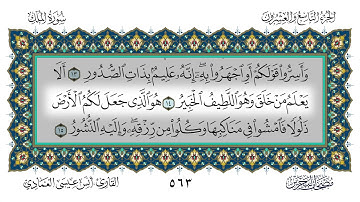 الجزء التاسع والعشرون
سورة الملك
وَأَسِرُّوا۟ قَوْلَكُمْ أَوِ ٱجْهَرُوا۟ بِهِۦٓ ۖ إِنَّهُۥ عَلِيمٌۢ بِذَاتِ ٱلصُّدُورِ ١٣ أَلَا
يَعْلَمُ مَنْ خَلَقَ وَهُوَ ٱللَّطِيفُ ٱلْخَبِيرُ ١٤ هُوَ ٱلَّذِى جَعَلَ لَكُمُ ٱلْأَرْضَ
ذَلُولًا فَٱمْشُوا۟ فِى مَنَاكِبِهَا وَكُلُوا۟ مِن رِّزْقِهِۦ ۖ وَإِلَيْهِ ٱلنُّشُورُ ١٥
٥٦٣
القارئ: أنس عيسى العمادي